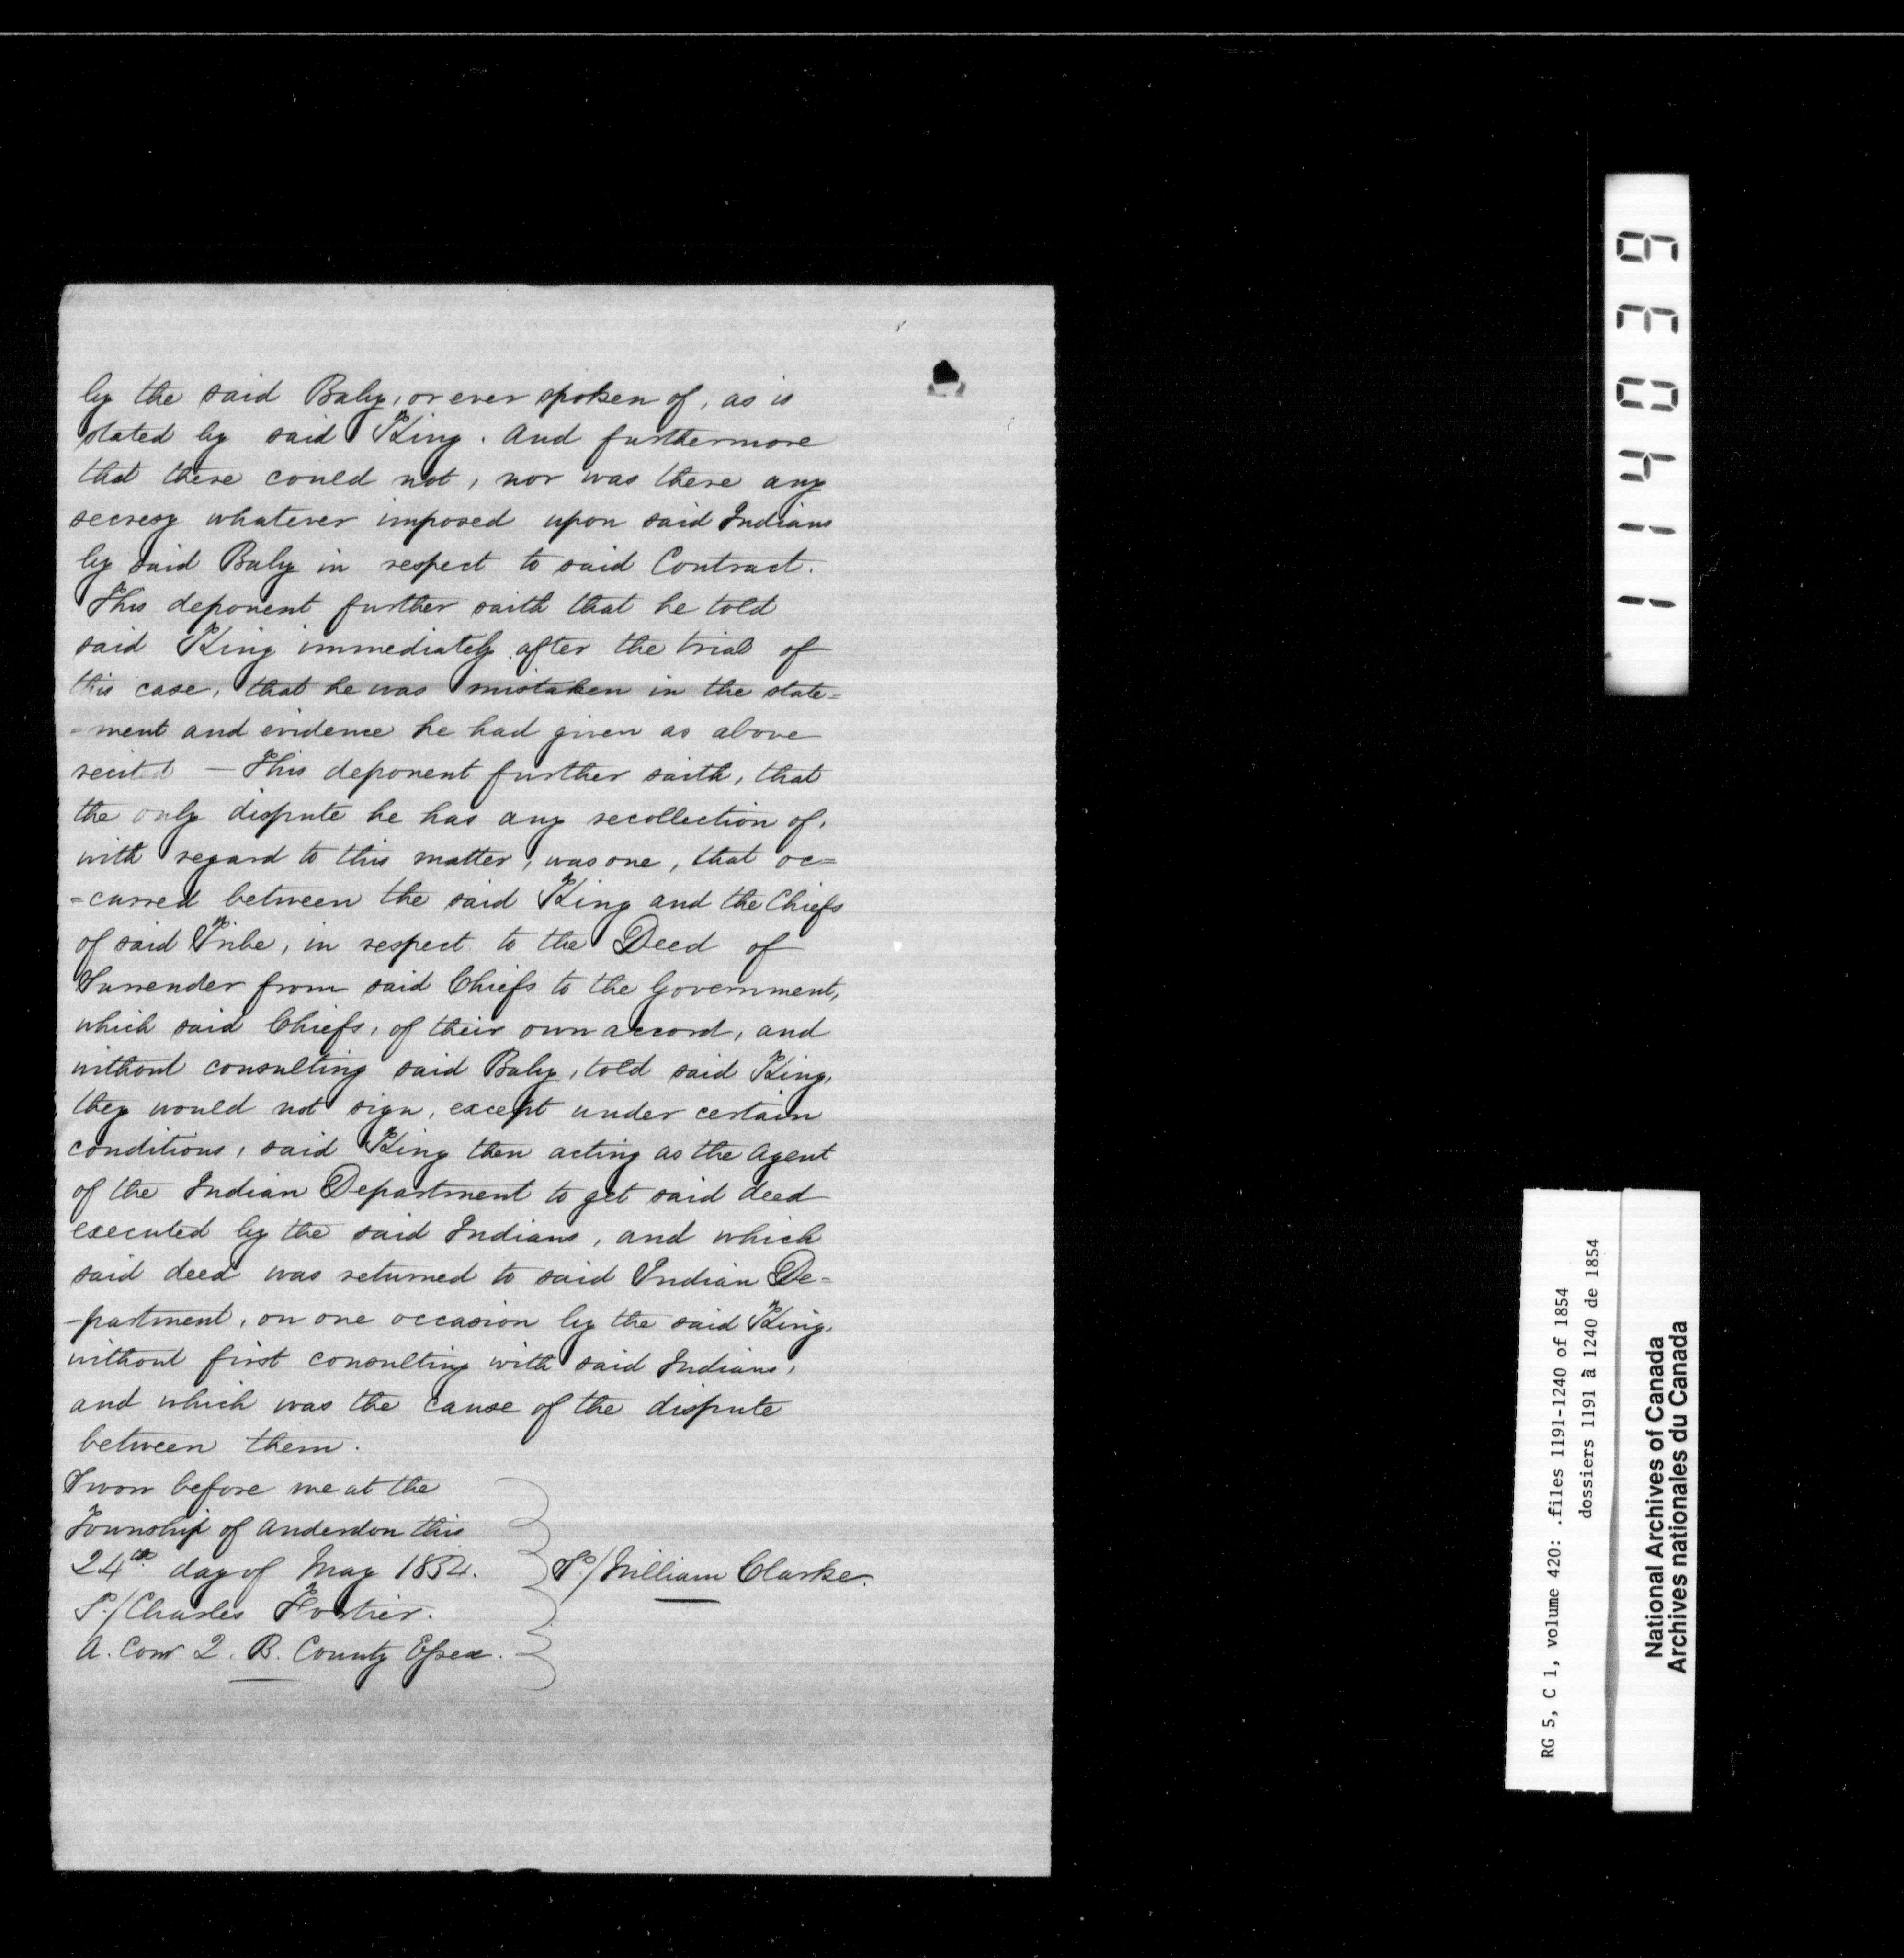 by the said Baby, or ever spoken of, as is
stated by said King. And furthermore
that there could not, nor was there any
secresy whatever imposed upon said Indians
by said Baby in respect to said Contract.
This deponent further saith that he told
said King immediately after the trial of
this case, that he was mistaken in the state=
=ment and evidence he had given as above
recited — This deponent further saith, that
the only dispute he has any recollection of,
with regard to this matter, was one, that oc=
=curred between the said King and the Chiefs
of said Tribe, in respect to the Deed of
Surrender from said Chiefs to the Government,
which said Chiefs, of their own accord, and
without consulting said Baby, told said King,
they would not sign, except under certain
conditions, said King then acting as the Agent
of the Indian Department to get said deed
executed by the said Indians, and which
said deed was returned to said Indian De=
-partment, on one occasion by the said King,
without first consulting with said Indians,
and which was the cause of the dispute
between them.
Sworn before me at the
Township of Anderdon this
24th day of May 1854.
S./William Clarke.
S./Charles Fortier.
A. Comr Q. B. County Essex.
114039
RG 5, C 1, volume 420: .files 1191-1240 of 1854
dossiers 1191 à 1240 de 1854
National Archives of Canada
Archives nationales du Canada